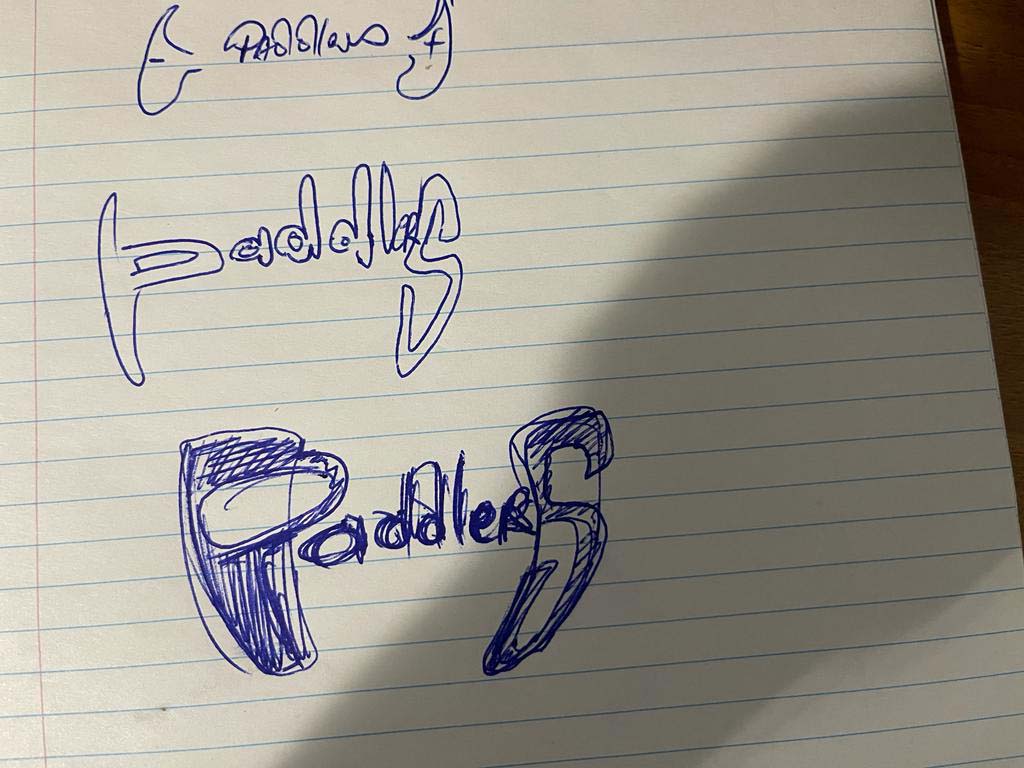 - Paddlers +
Paddlers
PaddleRS